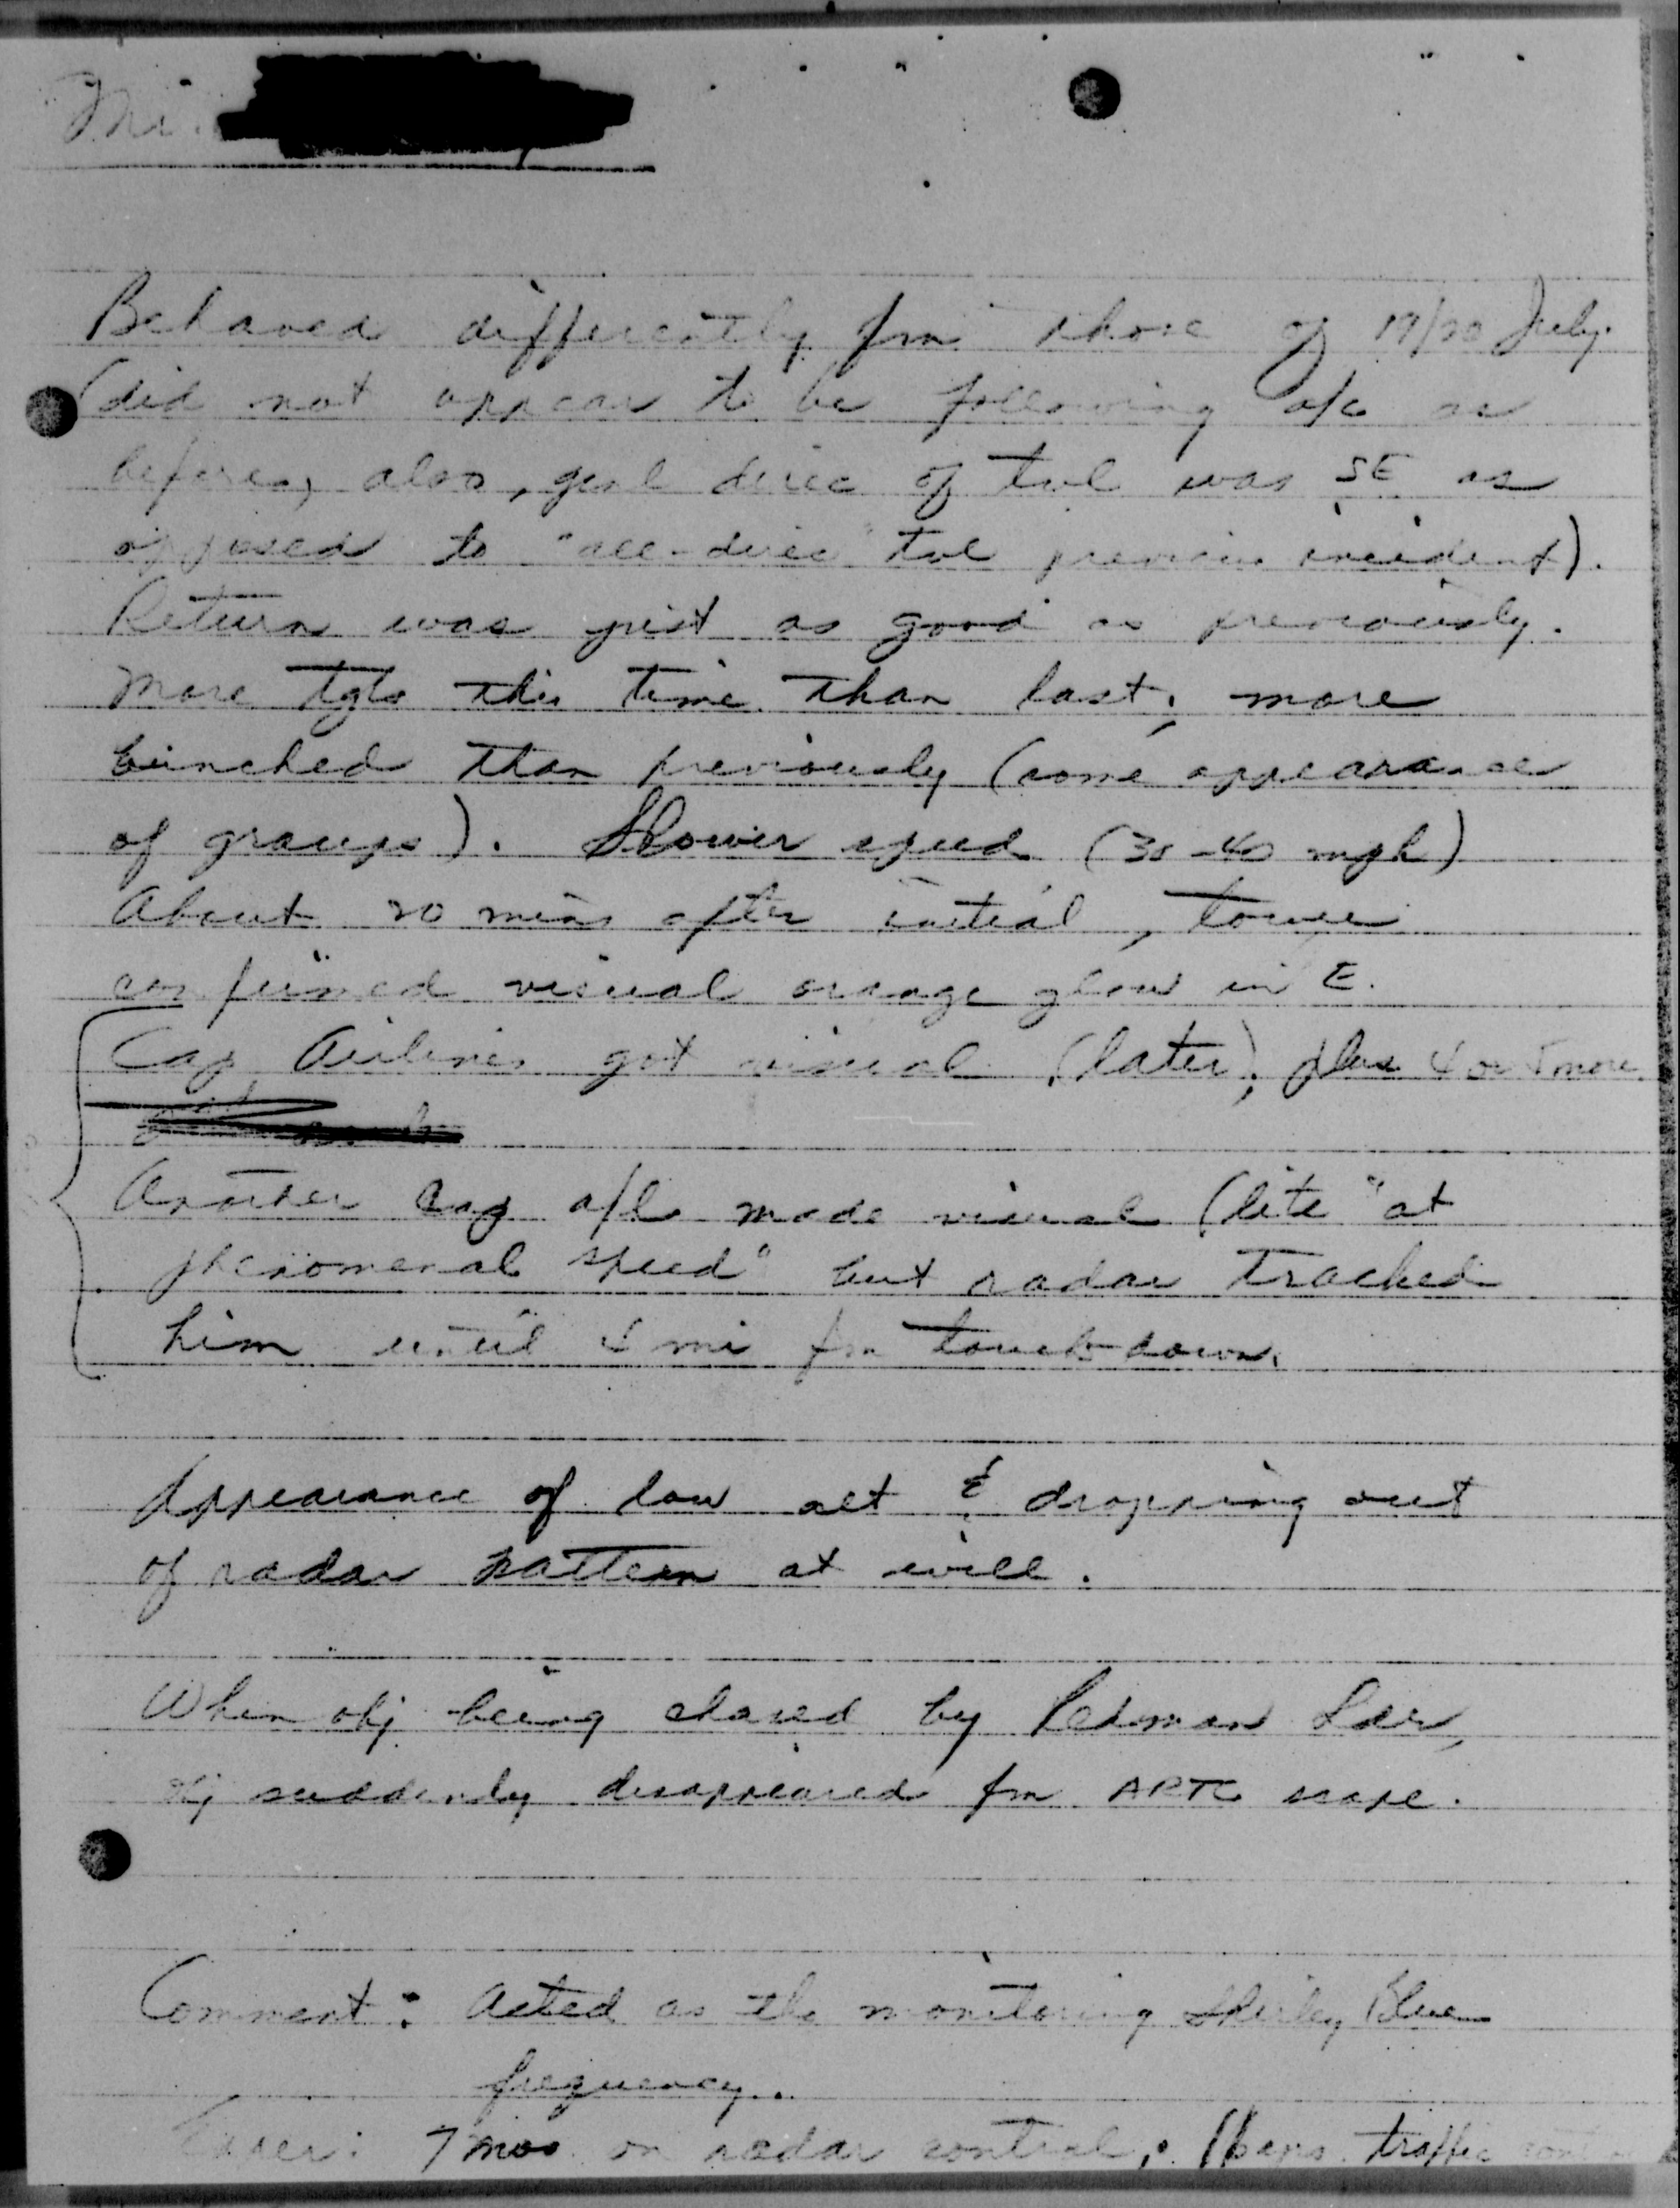 Mr.
Behaved differently fm those of 19/20 July.
(did not appear to be following a/c as
before, also, genl direc of tvl was SE as
opposed to "all-direc" tvl previous incident).
Return was just as good as previously.
More tgts this time than last; more
bunched than previously (some appearance
of groups). Slower speed (30-40 mph)
About 20 mins after initial, tower
confirmed visual orange glow in E.
Cap Airlines got visual (later), plus 4 or 5 more.
Another Cap a/l made visual (lite "at
phenomenal speed" but radar tracked
him until 4 mi fm touch-down.
Appearance of low alt & dropping out
of radar pattern at will.
When obj being chased by Redman Ldr,
obj suddenly disappeared fm ARTC scope.
Comment: Acted as tho monitoring Shirley Blue
frequency.
Exper: 7 mos on radar control; traffic